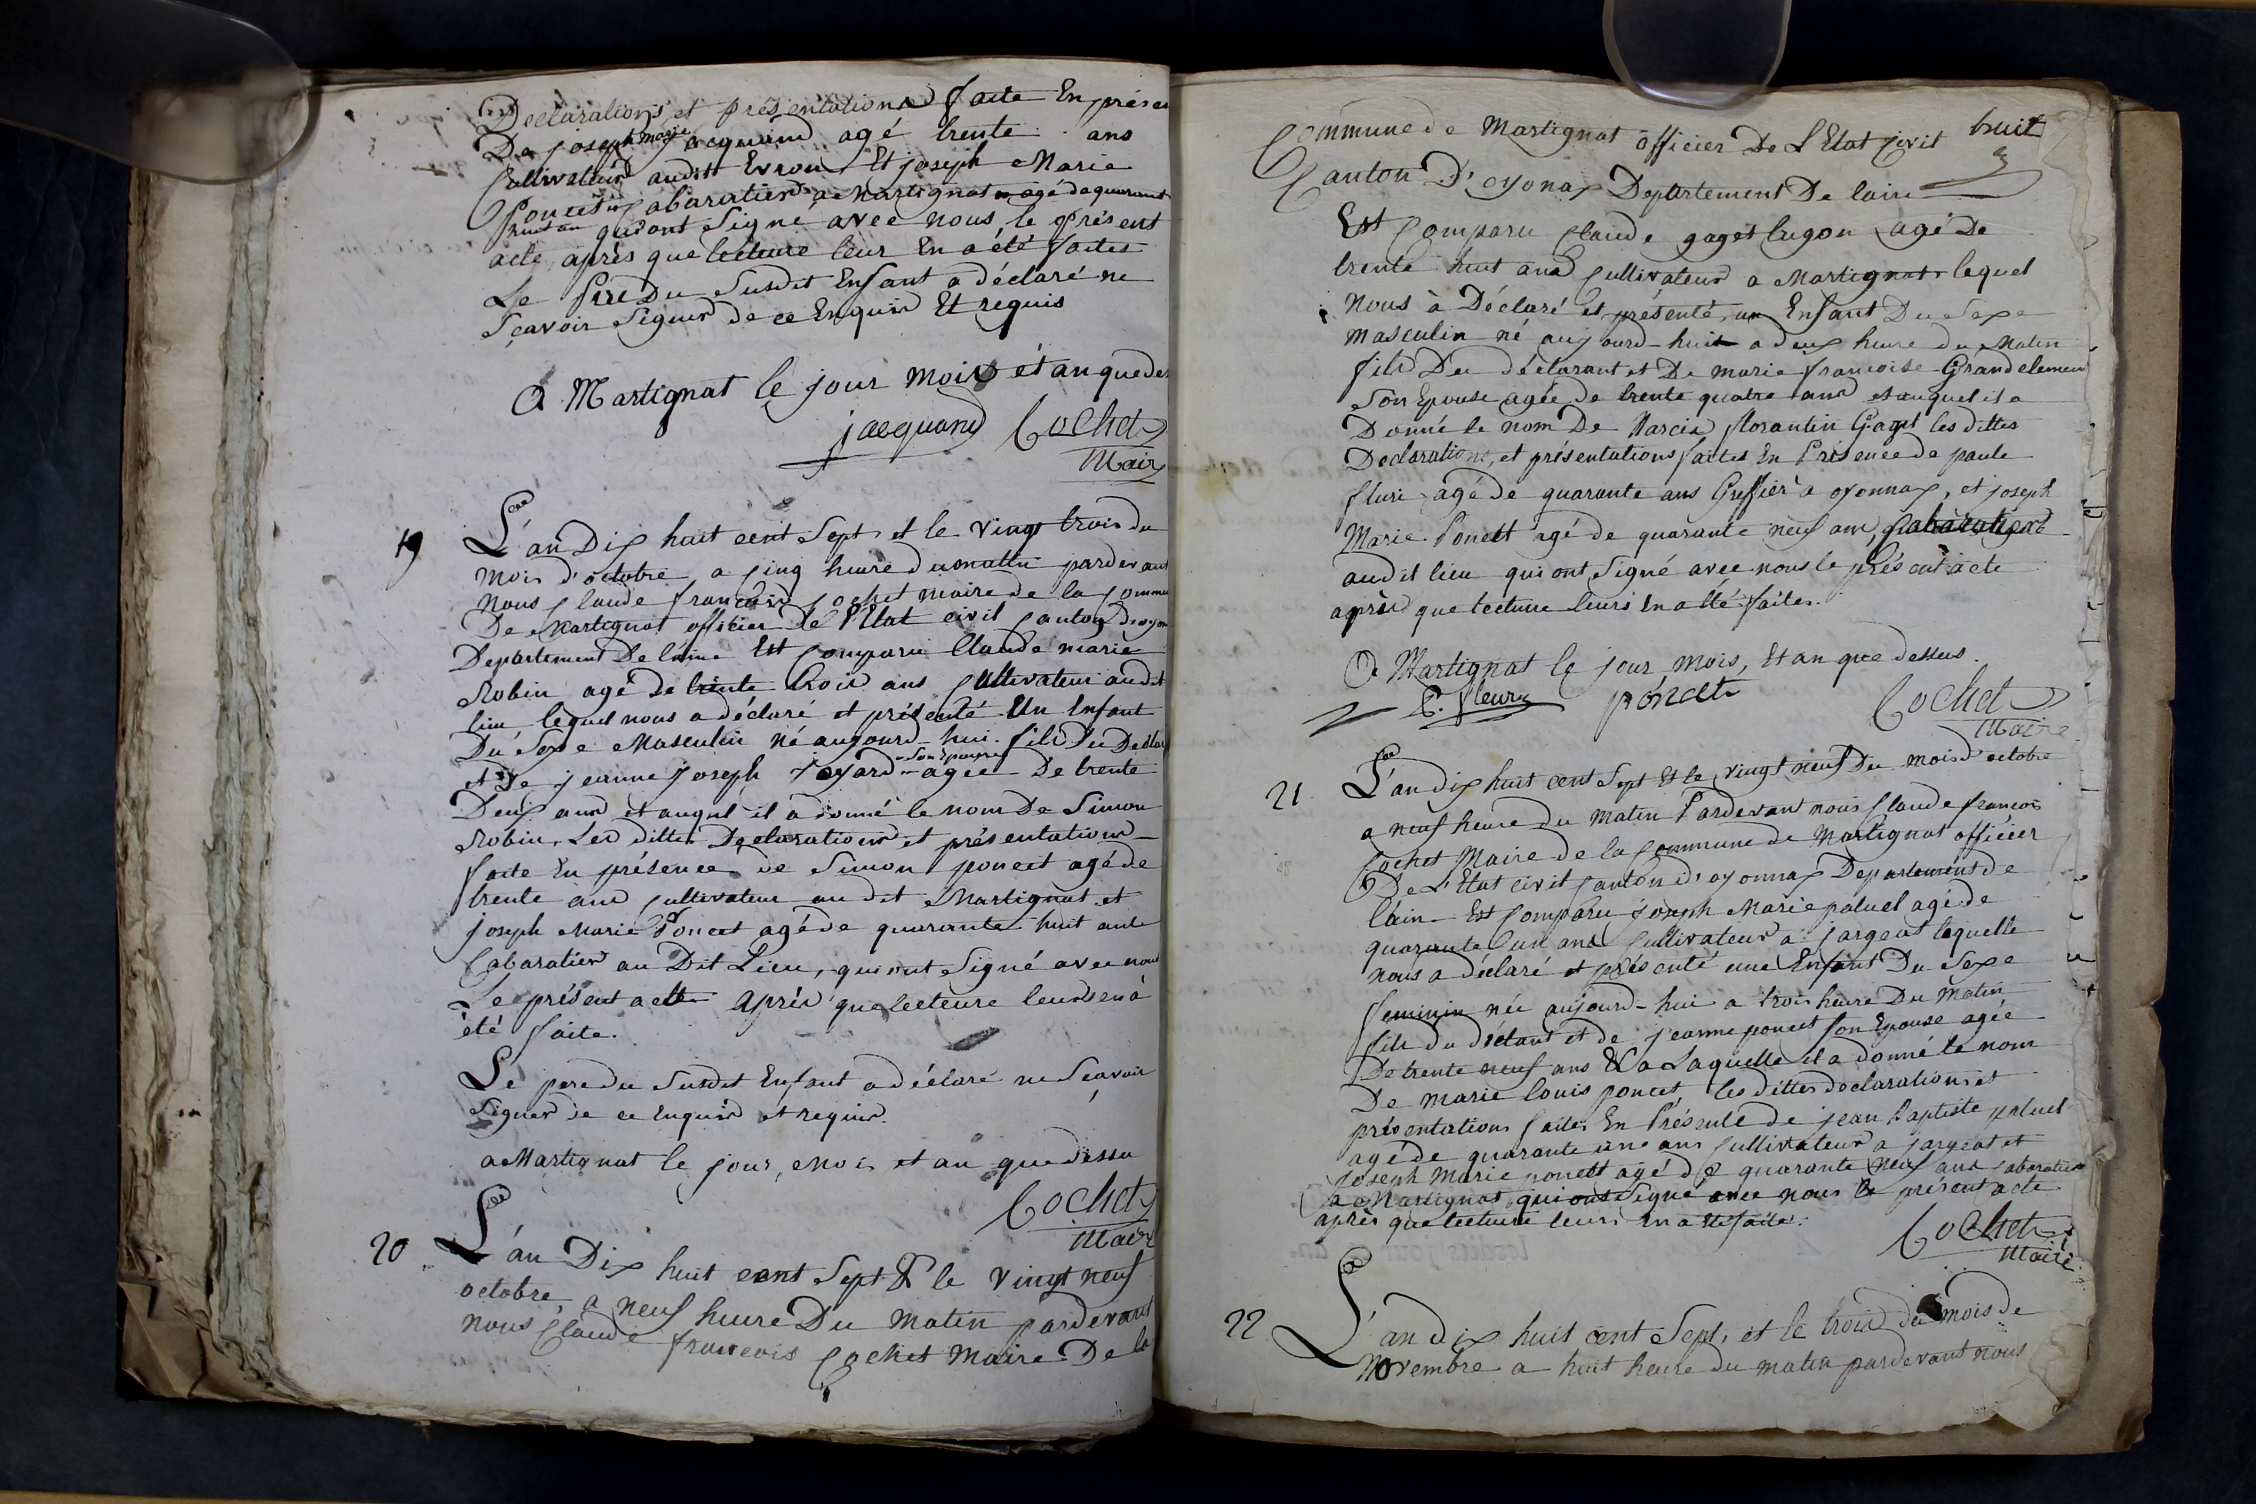 Declarations et présentations faite En présen
De joseph marie jacquand agé trente ans
Cultivateur audit Evron Et joseph Marie
Poncet Cabaratier a Martignat agé de quarant
huit an qui ont Signe avec nous le présent
acte, après que lecture leur En a été faites
Le Père Du Susdit Enfant a déclaré ne
Sçavoir Signer de ce Enquir Et requis
A Martignat le jour mois et an que de
jacquand Cochet
Maire
19 L'an Dix huit cent Sept et le vingt trois du
mois d'octobre, a Cinq heure du mattin pardevant
nous Claude francois Cochet maire de la Commu
De Martignat officier de l'Etat civil Canton d'oyon
Departement De laine Est Comparu Claude marie
Robin agé de trente trois ans Cultivateur audit
lieu lequel nous a déclaré et présenté Un Enfant
Du Sexe Masculin né aujourd-hui fils Du Declar
et De jeanne joseph joyard Son Epouse agée De trente
Deux ans et auquel il a donné le nom De Simon
Robin, Les dittes Declarations et présentations
faite En présence de Simon poncet agé de
trente ans Cultivateur au dit Martignat et
joseph Marie Poncet agé de quarante huit ants
Cabaratier au Dit Lieu, qui ont Signé avec nous
Le présent actte Après que lecteure leurs en à
été faite.
Le pere du Susdit Enfant a déclaré ne Sçavoir
Signer de ce Enquis et requis.
a Martignat le jour, Mois et an que dessu
Cochet
Maire
20 L'an Dix huit cent Sept & le vingt neuf
octobre a neuf heure Du matin pardevant
nous Claude francois Cochet Maire De la
Commune de Martignat officier De L'Etat Civil huit
Canton D'oyonax Departement De lain
Est Comparu Claude gaget lugon agé De
trente huit ans Cultivateur a Martignat lequel
nous à Déclaré et présenté, un Enfant Du Sexe
masculin né aujourd-huit a deux heure du Matin
fils Du déclarant et De marie francoise Grandclement
Son Epouse agée de trente quatre ans et auquel il a
Donné le nom De Narcis florantin Gaget les dittes
Declarations, et présentations faites En Présence de paule
fluri agé de quarante ans Greffier a oyonnax, et joseph
Marie Poncet agé de quarante neuf ans, Cabaratier
audit lieu qui ont Signé avec nous le présent acte
après que lecture leurs En a été faites.
A Martignat le jour, mois, Et an que dessus.
P. fleury ponet Cochet
Maire
21 L'an dix huit cent Sept Et le vingt neuf Du mois d'octobre
a neuf heure du matin Pardevant nous Claude francois
Cochet Maire de la Commune de Martignat officier
De L'Etat civil Canton d'oyonnax Departement de
l'ain Est Comparu joseph Marie paluel agé de
quarante un ans Cultivateur a jargeat lequelle
nous a déclaré et présenté une Enfant Du Sexe
feminin née aujourd-hui a trois heure Du Matin
fils du déclant et de jeanne poncet Son Epouse agée
De trente neuf ans & a Laquelle il a donné le nom
De marie louis poncet, les dittes declarations et
présentations faites En Présente de jean Baptiste paluel
agé de quarante une ans Cultivateur a jargeat et
joseph Marie poncet agé de quarante neuf ans Cabaratier
a Martignat qui ont Signé avec nous le présent acte
après que lecture leurs En a été faite.
Cochet
Maire
22 L'an dix huit cent Sept, et le trois du mois de
Novembre a huit heure du matin pardevant nous